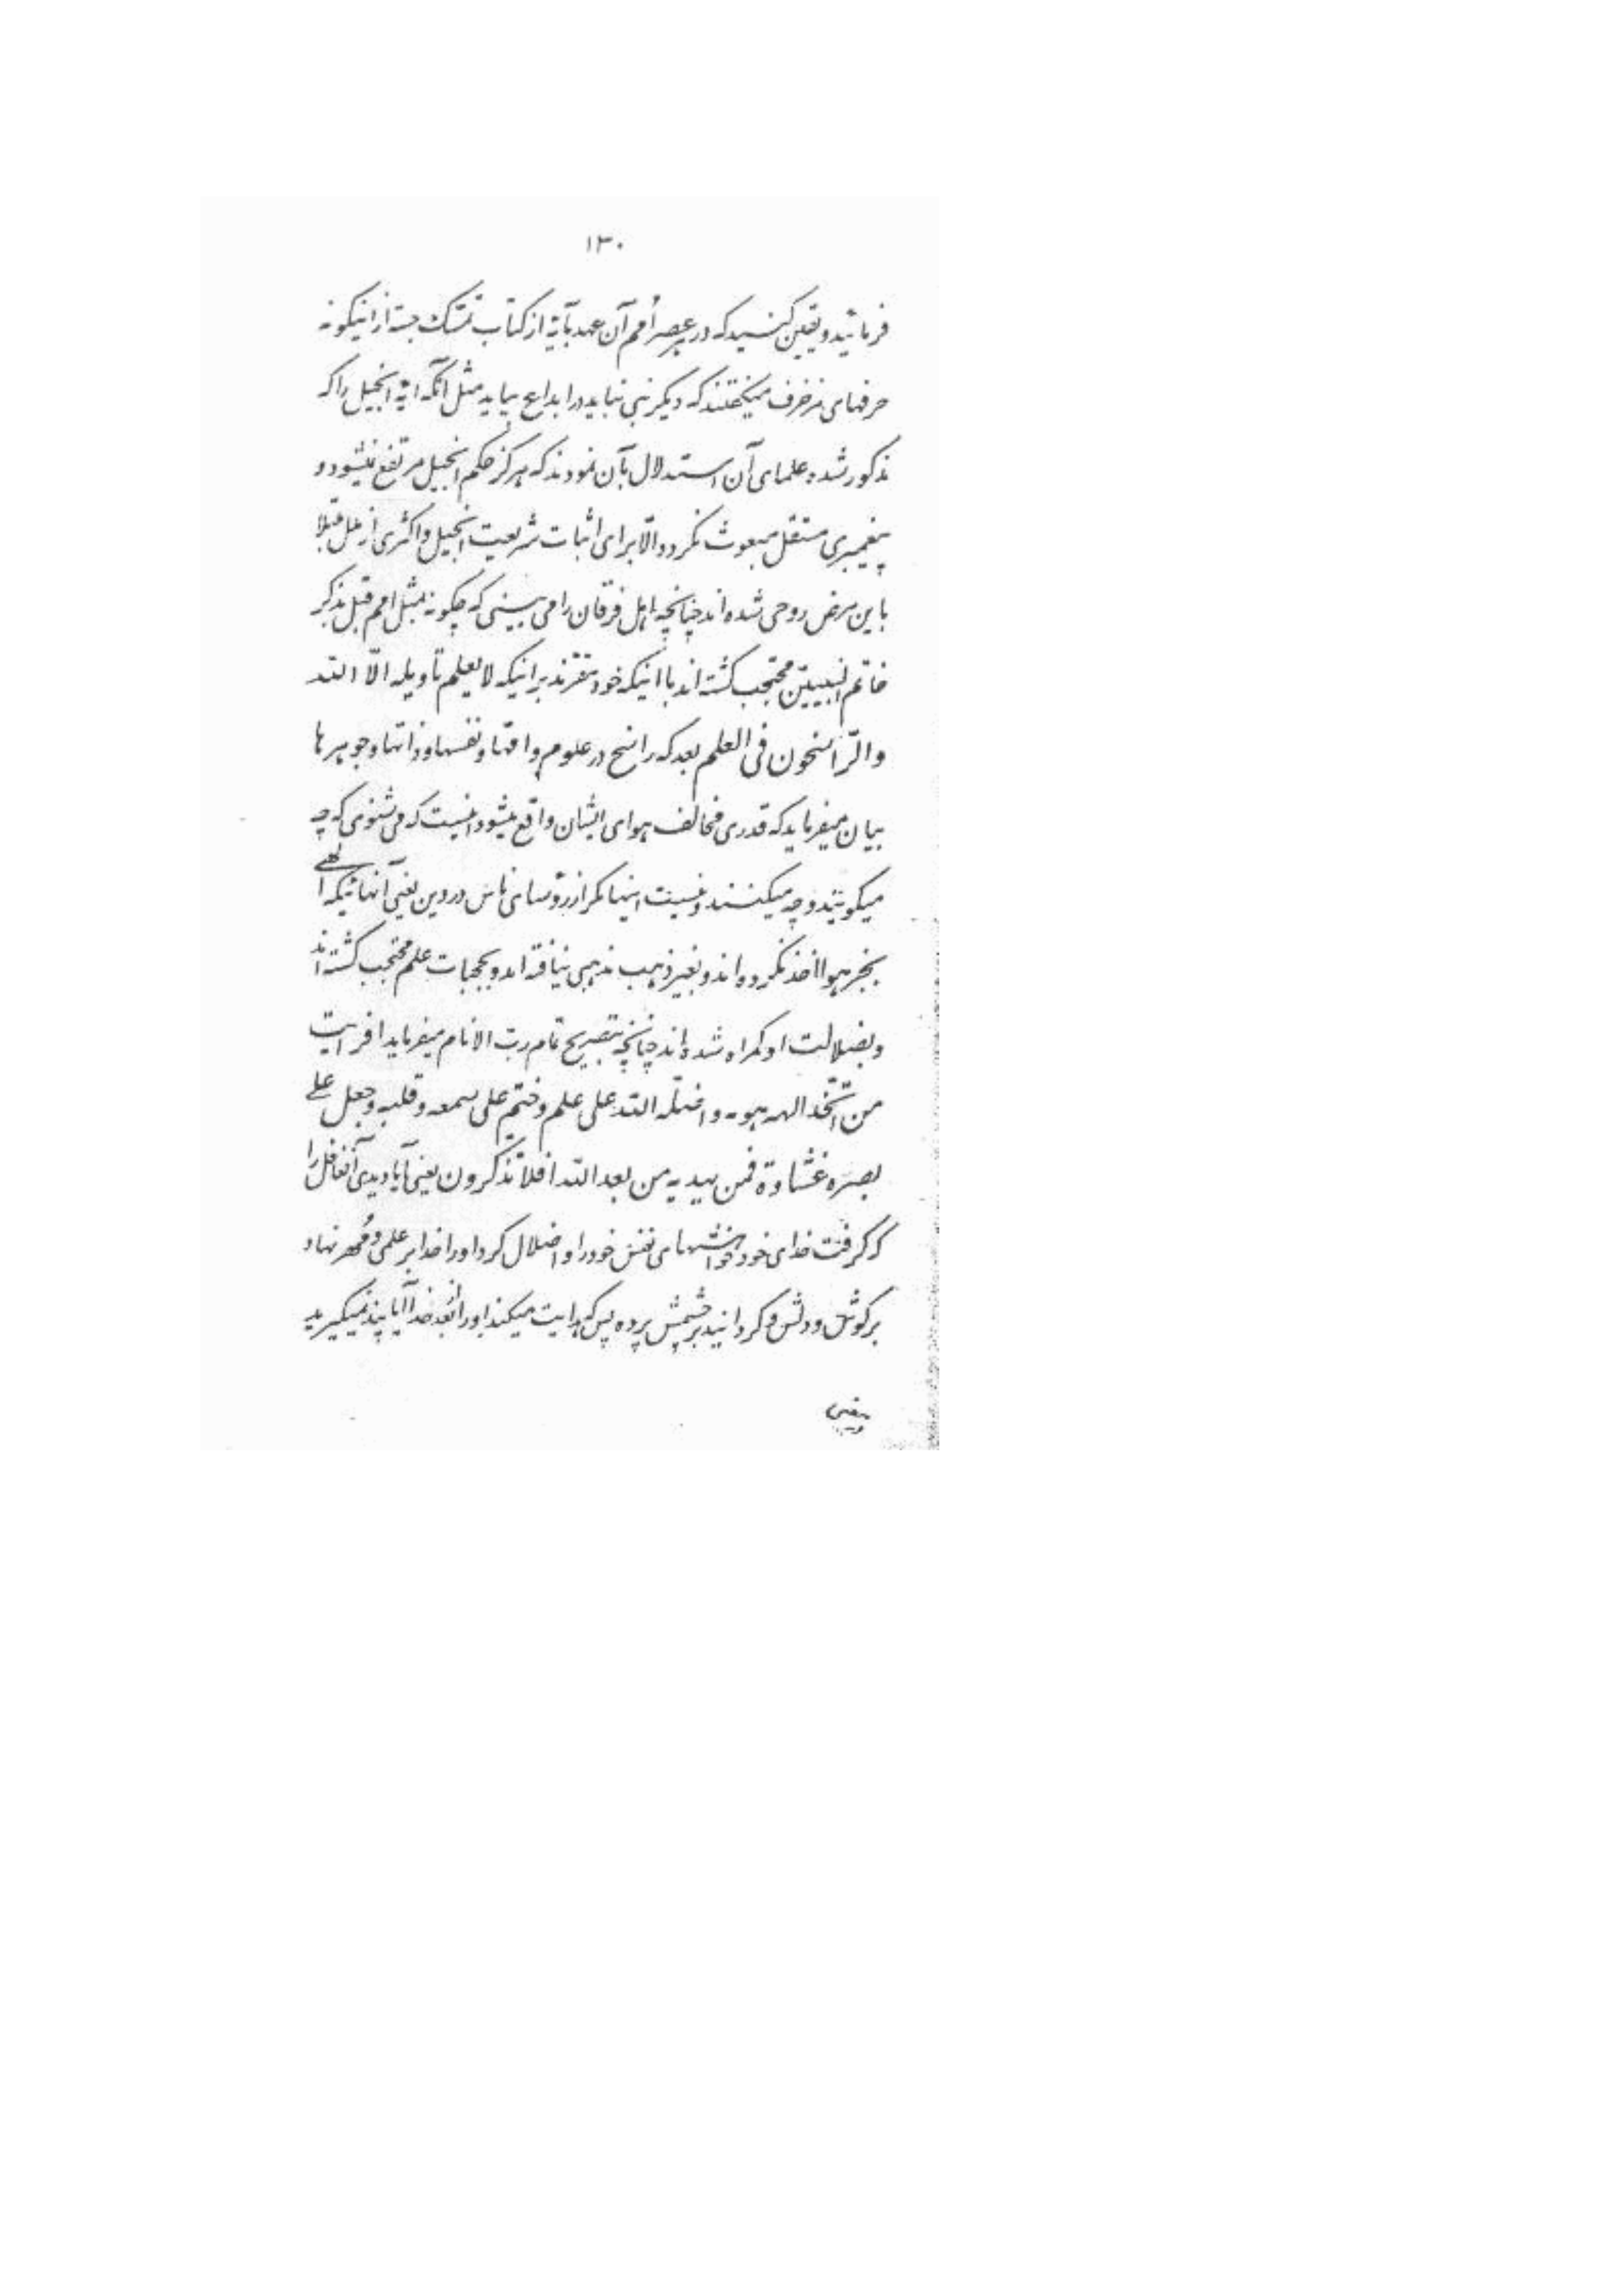 ۱۳۰
فرمائید و یقین کنید که در هر عصر اُمم آن عهد بآیهٔ از کتاب تمسّک جسته از اینگونه
حرفهای مزخرف میگفتند که دیگر نبی نباید در ابداع بیاید مثل آنکه آیهٔ انجیل را که
مذکور شد علمای آن استدلال بآن نمودند که هرگز حکم انجیل مرتفع نمیشود و
پیغمبری مستقلّ مبعوث نگردد الّا برای اثبات شریعت انجیل و اکثری از ملل مبتلا
باین مرض روحی شده‌اند چنانچه اهل فرقان را می بینی که چگونه بمثل امم قبل بذکر
خاتم النبیین محتجب گشته‌اند با اینکه خود مقرند بر اینکه لا یعلم تأویله الّا اللّه
و الرّاسخون فی العلم بعد که راسخ در علوم و امّها و نفسها و ذاتها و جوهرها
بیان میفرماید که قدری مخالف هوای ایشان واقع میشود اینست که می شنوی که چه
میگویند و چه میکنند و نیست اینها مگر از رؤسای ناس در دین یعنی آنهائیکه الهی
بجز هوا اخذ نکرده‌اند و بغیر ذهب مذهبی نیافته‌اند و بحجبات علم محتجب گشته‌اند
و بضلالت او گمراه شده‌اند چنانچه بتصریح تمام ربّ الانام میفرماید افرایت
من اتّخذ الهه هویه و اضلّه اللّه علی علم و ختم علی سمعه و قلبه و جعل علی
بصره غشاوة فمن یهدیه من بعد اللّه افلا تذکرون یعنی آیا دیدی آن غافل را
که گرفت خدای خود خواهشهای نفس خود را و اضلال کرد او را خدا بر علمی و مُهر نهاد
بر گوش و دلش و گردانید بر چشمش پرده پس که هدایت میکند او را از بعد خدا آیا پند نمیگیرید